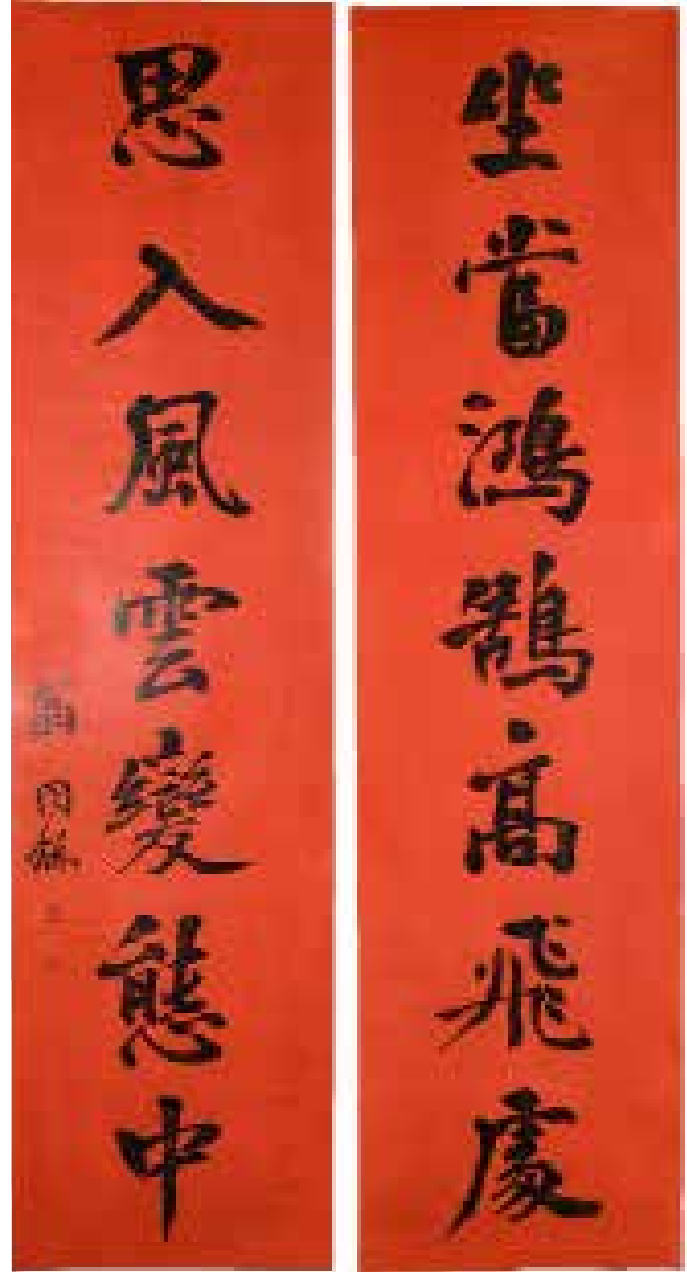 坐當鴻鵠高飛處
思入風雲變態中
翁同龢